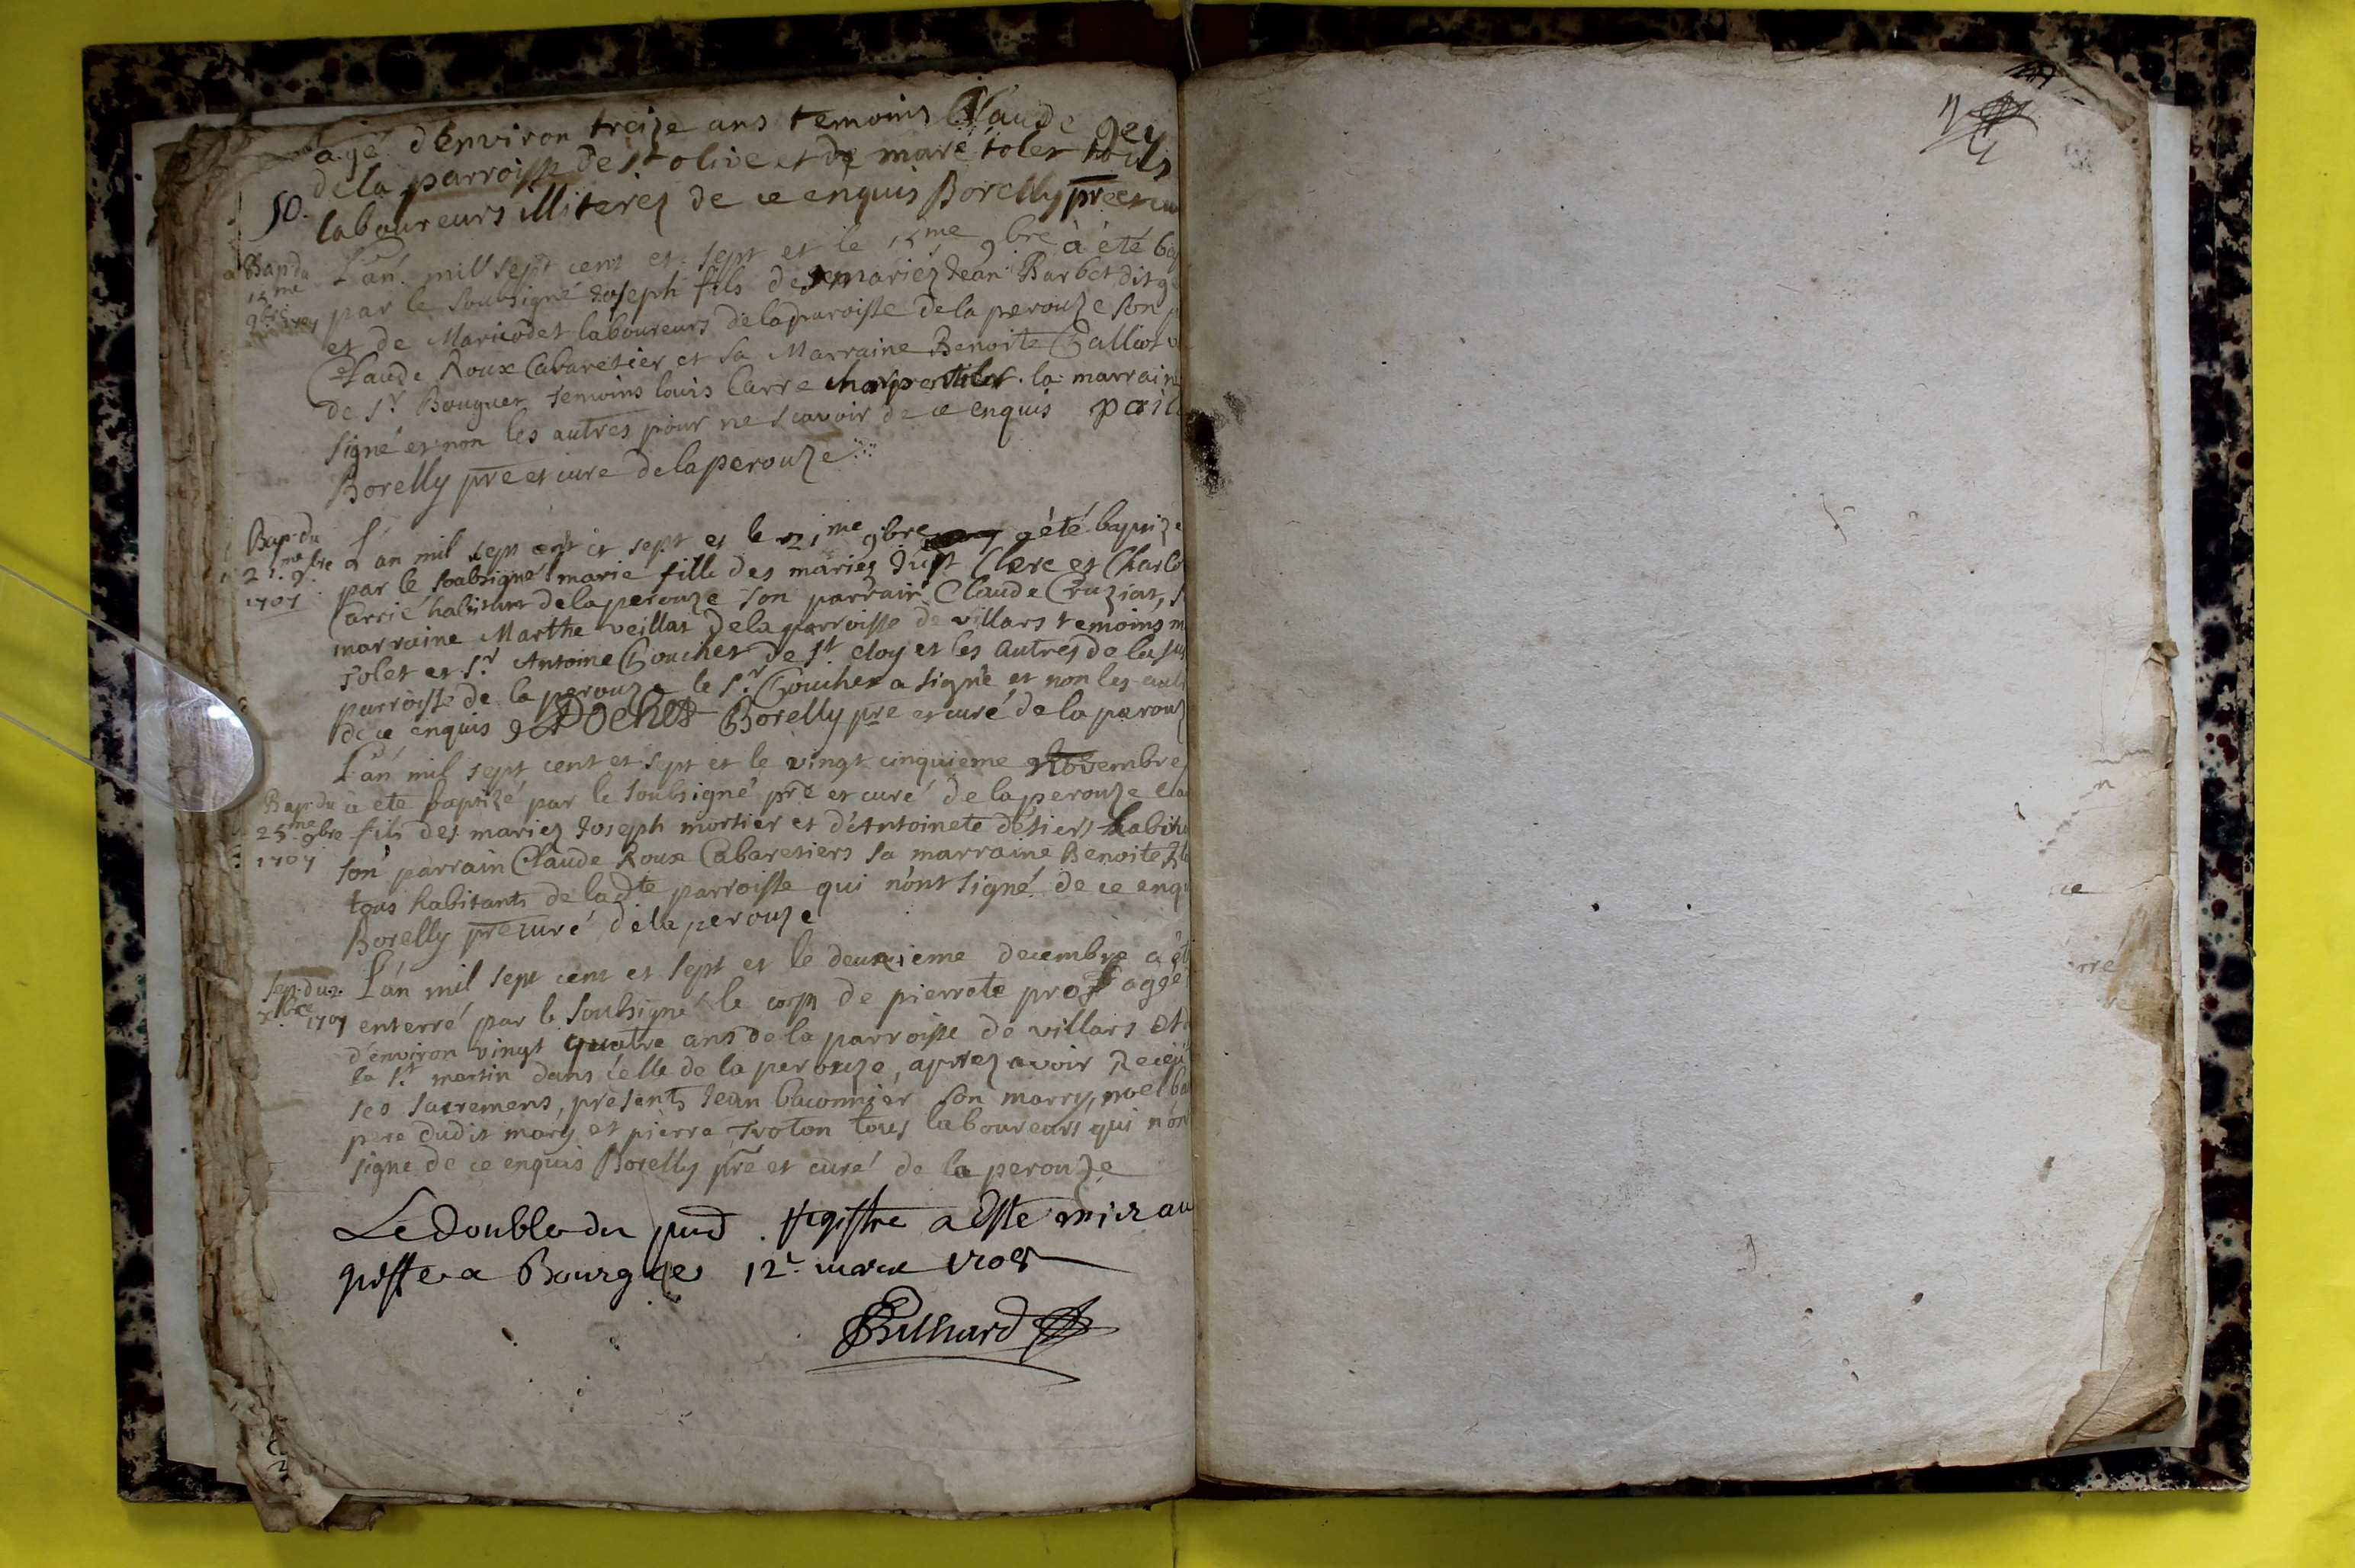 agé d'Environ treize ans temoins Claude Jey
de la parroisse de st olive et de marc tolet tous
50. laboureurs illiterez de ce enquis Borelly pre et cu
Bap du L'an mill sept cent et sept et le 15me 9bre à été bap
15me par le soubsigné Joseph fils des mariez Jean Barbet dit
9bre 1707 et de Marie odet laboureurs de la paroisse de la perouze son p
Claude Roux Cabaretier et sa Marraine Benoite Galliot
de sr Bouguer temoins louis Carre charpentier la marrain
signé et non les autres pour ne scavoir de ce enquis
Borelly pre et cure de la perouze
Bap du L'an mil sept cent et sept et le 21me 9bre a été baptizé
21me 9bre par le soubsigné marie fille des mariez Just Clerc et Charlo
1707 Carrié habitants de la perouze son parrain Claude Cruziat, s
marraine Marthe veillat de la parroisse de villars temoins m
tolet et sr Antoine Gouchet de st eloy et les autres de la su
parroisse de la perouze le sr Gouchet a signé et non les aut
de ce enquis Borelly pre et curé de la perouz
L'an mil sept cent et sept et le vingt cinquieme Novembre
Bap du a été baptizé par le soubsigné pre et curé de la perouze cla
25me 9bre fils des mariez Joseph mortier et d'Antoinete désiers habita
1707 son parrain Claude Roux Cabaretiers sa marraine Benoite
tous habitants de ladte parroisse qui n'ont signé de ce enqu
Borelly pre curé de la perouze
Sep. du 2 L'an mil sept cent et sept et le deuxieme decembre a ét
xbre 1707 enterré par le soubsigné le corps de pierrete prost aggé
d'environ vingt quatre ans de la parroisse de villars et
la st martin dans celle de la perouze, aprez avoir Receu
ses sacremens, présents Jean baconnier son marry, noel ba
pere dudit mary et pierre troton tous laboureurs qui n'on
signé de ce enquis Borelly pre et curé de la perouze
Le double du pnd. registre a este mis au
greffe a Bourg le 12e mars 1708